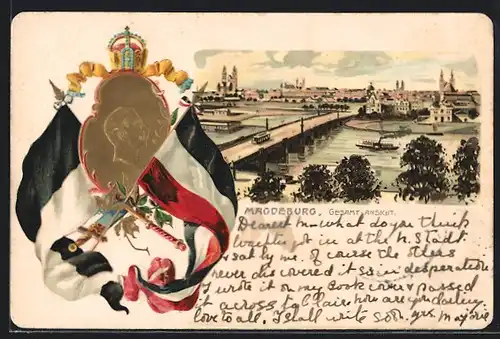 MAGDEBURG. GESAMT-ANSICHT.
Dearest M—what do you think
got in at the H. Stadt
& sat by me. Of course the others
never discovered it so in desperation
I wrote it on my book cover & passed
it across table. how are you darling
love to all. I shall write soon. yrs. Marjorie